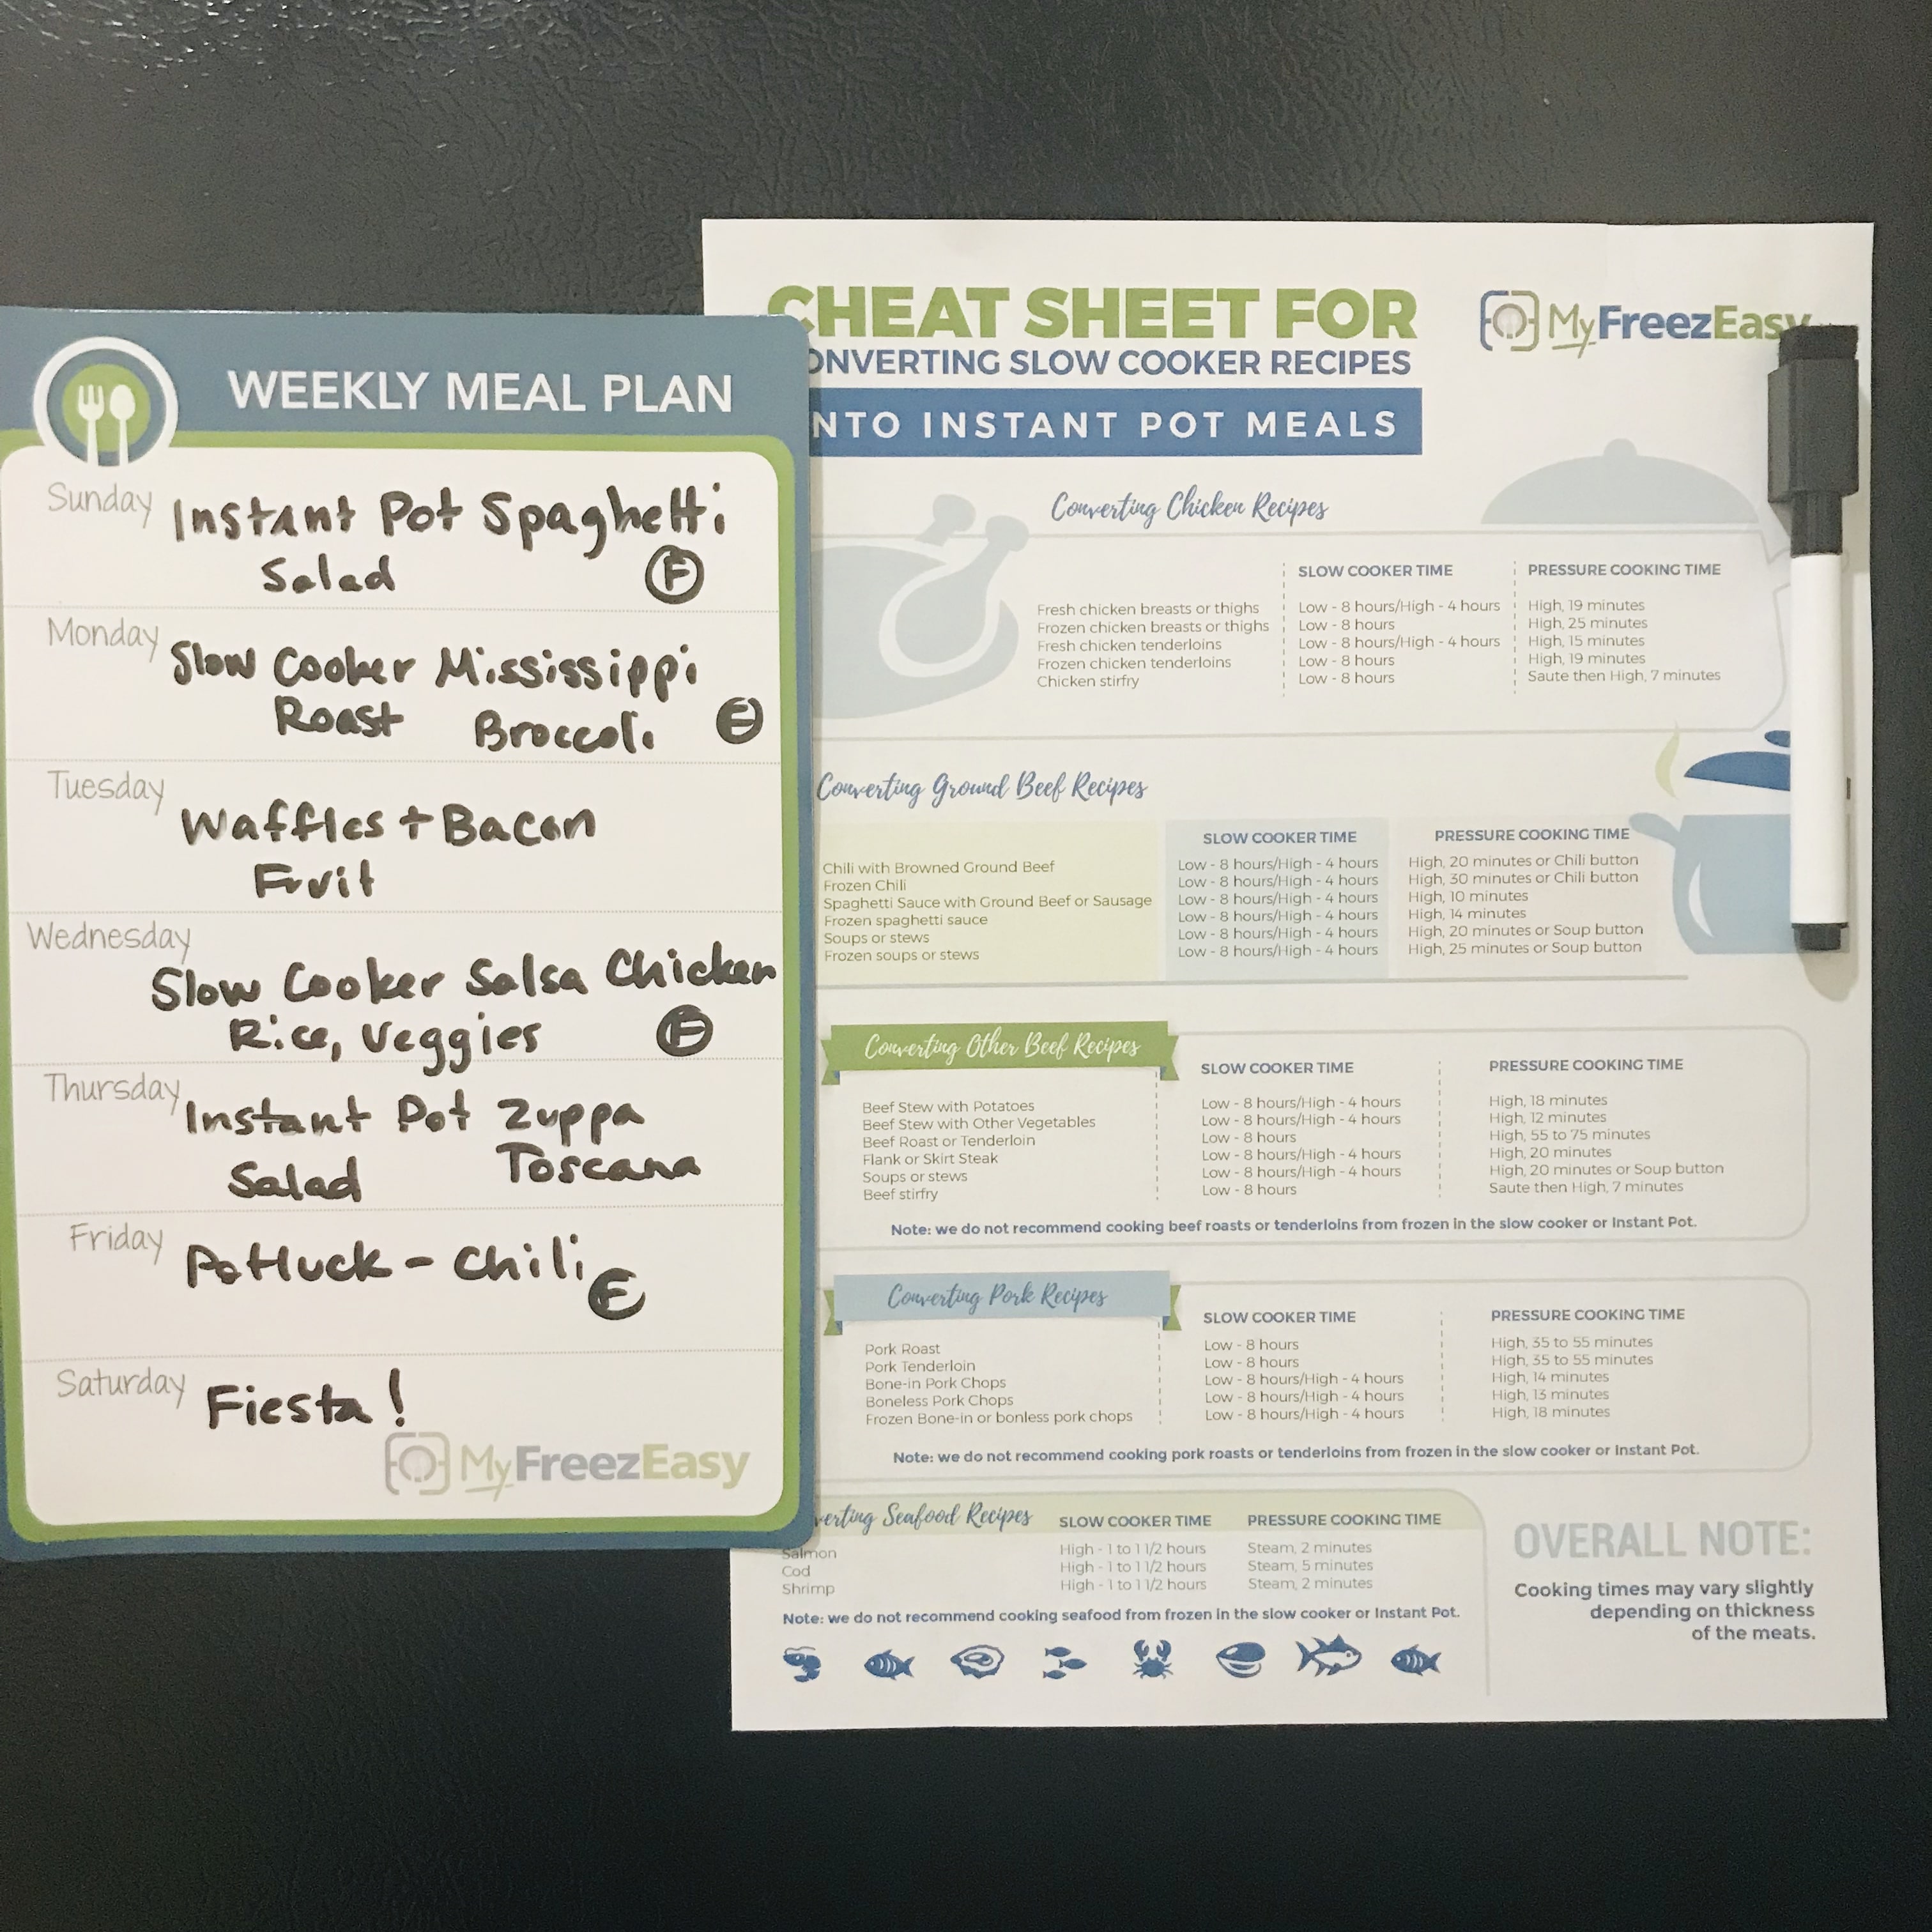 WEEKLY MEAL PLAN
Sunday
Instant Pot Spaghetti
Salad F
Monday
Slow Cooker Mississippi
Roast Broccoli F
Tuesday
Waffles + Bacon
Fruit
Wednesday
Slow Cooker Salsa Chicken
Rice, Veggies F
Thursday
Instant Pot Zuppa
Salad Toscana
Friday
Potluck - Chili
F
Saturday
Fiesta!
MyFreezEasy
CHEAT SHEET FOR
ONVERTING SLOW COOKER RECIPES
NTO INSTANT POT MEALS
MyFreezEasy
Converting Chicken Recipes
SLOW COOKER TIME PRESSURE COOKING TIME
Fresh chicken breasts or thighs Low - 8 hours/High - 4 hours High, 19 minutes
Frozen chicken breasts or thighs Low - 8 hours High, 25 minutes
Fresh chicken tenderloins Low - 8 hours/High - 4 hours High, 15 minutes
Frozen chicken tenderloins Low - 8 hours High, 19 minutes
Chicken stirfry Low - 8 hours Saute then High, 7 minutes
Converting Ground Beef Recipes
SLOW COOKER TIME PRESSURE COOKING TIME
Chili with Browned Ground Beef Low - 8 hours/High - 4 hours High, 20 minutes or Chili button
Frozen Chili Low - 8 hours/High - 4 hours High, 30 minutes or Chili button
Spaghetti Sauce with Ground Beef or Sausage Low - 8 hours/High - 4 hours High, 10 minutes
Frozen spaghetti sauce Low - 8 hours/High - 4 hours High, 14 minutes
Soups or stews Low - 8 hours/High - 4 hours High, 20 minutes or Soup button
Frozen soups or stews Low - 8 hours/High - 4 hours High, 25 minutes or Soup button
Converting Other Beef Recipes
SLOW COOKER TIME PRESSURE COOKING TIME
Beef Stew with Potatoes Low - 8 hours/High - 4 hours High, 18 minutes
Beef Stew with Other Vegetables Low - 8 hours/High - 4 hours High, 12 minutes
Beef Roast or Tenderloin Low - 8 hours High, 55 to 75 minutes
Flank or Skirt Steak Low - 8 hours/High - 4 hours High, 20 minutes
Soups or stews Low - 8 hours/High - 4 hours High, 20 minutes or Soup button
Beef stirfry Low - 8 hours Saute then High, 7 minutes
Note: we do not recommend cooking beef roasts or tenderloins from frozen in the slow cooker or Instant Pot.
Converting Pork Recipes
SLOW COOKER TIME PRESSURE COOKING TIME
Pork Roast Low - 8 hours High, 35 to 55 minutes
Pork Tenderloin Low - 8 hours High, 35 to 55 minutes
Bone-in Pork Chops Low - 8 hours/High - 4 hours High, 14 minutes
Boneless Pork Chops Low - 8 hours/High - 4 hours High, 13 minutes
Frozen Bone-in or bonless pork chops Low - 8 hours/High - 4 hours High, 18 minutes
Note: we do not recommend cooking pork roasts or tenderloins from frozen in the slow cooker or Instant Pot.
verting Seafood Recipes SLOW COOKER TIME PRESSURE COOKING TIME
Salmon High - 1 to 1 1/2 hours Steam, 2 minutes
Cod High - 1 to 1 1/2 hours Steam, 5 minutes
Shrimp High - 1 to 1 1/2 hours Steam, 2 minutes
Note: we do not recommend cooking seafood from frozen in the slow cooker or Instant Pot.
OVERALL NOTE:
Cooking times may vary slightly
depending on thickness
of the meats.